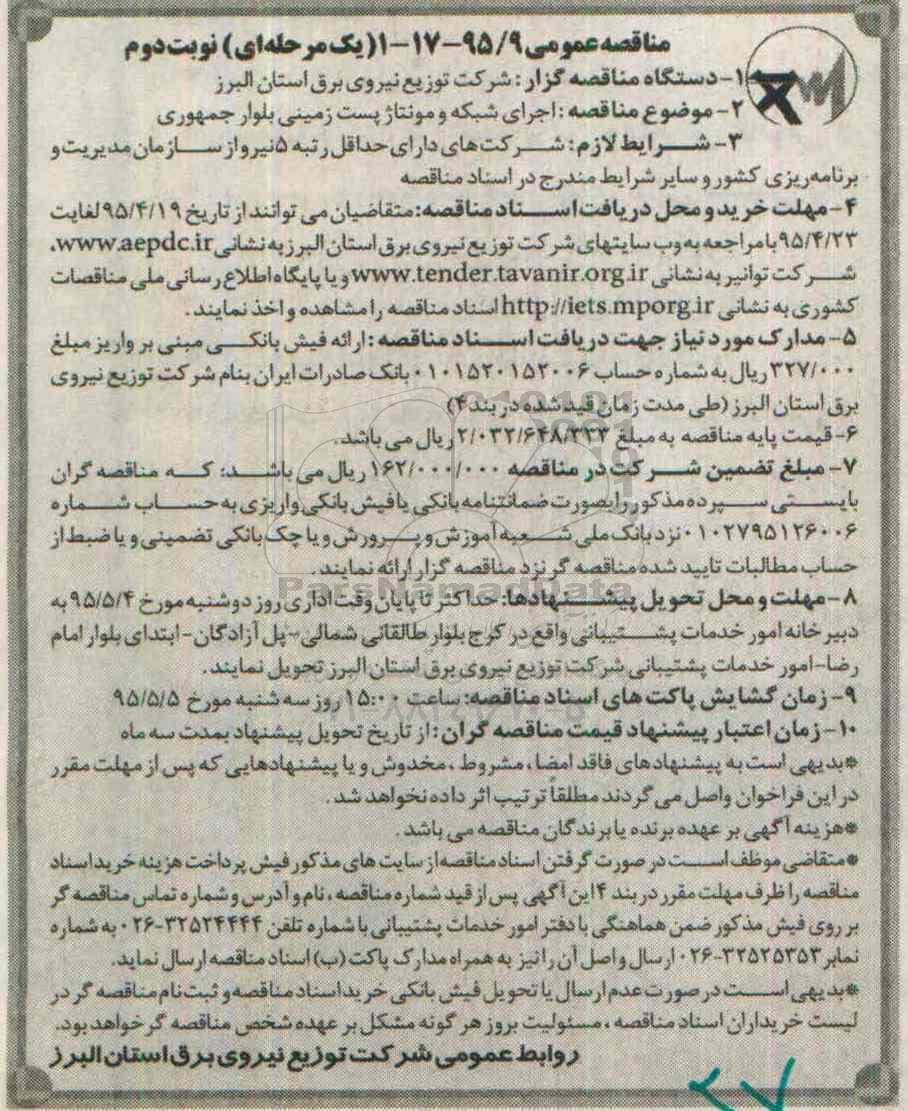 مناقصه عمومی ۹۵/۹-۱۷-۱ (یک مرحله‌ای) نوبت دوم
۱- دستگاه مناقصه گزار: شرکت توزیع نیروی برق استان البرز
۲- موضوع مناقصه: اجرای شبکه و مونتاژ پست زمینی بلوار جمهوری
۳- شرایط لازم: شرکت های دارای حداقل رتبه ۵ نیرو از سازمان مدیریت و
برنامه‌ریزی کشور و سایر شرایط مندرج در اسناد مناقصه
۴- مهلت خرید و محل دریافت اسناد مناقصه: متقاضیان می توانند از تاریخ ۹۵/۴/۱۹ لغایت
۹۵/۴/۲۳ با مراجعه به وب سایتهای شرکت توزیع نیروی برق استان البرز به نشانی www.aepdc.ir،
شرکت توانیر به نشانی www.tender.tavanir.org.ir و یا پایگاه اطلاع رسانی ملی مناقصات
کشوری به نشانی http://iets.mporg.ir اسناد مناقصه را مشاهده و اخذ نمایند.
۵- مدارک مورد نیاز جهت دریافت اسناد مناقصه: ارائه فیش بانکی مبنی بر واریز مبلغ
۳۲۷/۰۰۰ ریال به شماره حساب ۰۱۰۱۵۲۰۱۵۲۰۰۶ بانک صادرات ایران بنام شرکت توزیع نیروی
برق استان البرز (طی مدت زمان قید شده در بند ۴)
۶- قیمت پایه مناقصه به مبلغ ۲/۰۳۲/۶۴۸/۳۳۳ ریال می باشد.
۷- مبلغ تضمین شرکت در مناقصه ۱۶۲/۰۰۰/۰۰۰ ریال می باشد: که مناقصه گران
بایستی سپرده مذکور را بصورت ضمانتنامه بانکی یا فیش بانکی واریزی به حساب شماره
۰۱۰۲۷۹۵۱۲۶۰۰۶ نزد بانک ملی شعبه آموزش و پرورش و یا چک بانکی تضمینی و یا ضبط از
حساب مطالبات تایید شده مناقصه گر نزد مناقصه گزار ارائه نمایند.
ParsNamadData
۸- مهلت و محل تحویل پیشنهادها: حداکثر تا پایان وقت اداری روز دوشنبه مورخ ۹۵/۵/۴ به
دبیرخانه امور خدمات پشتیبانی واقع در کرج بلوار طالقانی شمالی-پل آزادگان-ابتدای بلوار امام
رضا-امور خدمات پشتیبانی شرکت توزیع نیروی برق استان البرز تحویل نمایند.
۹- زمان گشایش پاکت های اسناد مناقصه: ساعت ۱۵:۰۰ روز سه شنبه مورخ ۹۵/۵/۵
۱۰- زمان اعتبار پیشنهاد قیمت مناقصه گران: از تاریخ تحویل پیشنهاد بمدت سه ماه
*بدیهی است به پیشنهادهای فاقد امضا، مشروط، مخدوش و یا پیشنهادهایی که پس از مهلت مقرر
در این فراخوان واصل می گردند مطلقاً ترتیب اثر داده نخواهد شد.
*هزینه آگهی بر عهده برنده یا برندگان مناقصه می باشد.
*متقاضی موظف است در صورت گرفتن اسناد مناقصه از سایت های مذکور فیش پرداخت هزینه خرید اسناد
مناقصه را ظرف مهلت مقرر در بند ۴ این آگهی پس از قید شماره مناقصه، نام و آدرس و شماره تماس مناقصه گر
بر روی فیش مذکور ضمن هماهنگی با دفتر امور خدمات پشتیبانی با شماره تلفن ۳۲۵۲۴۴۴۴-۰۲۶ به شماره
نمابر ۳۲۵۲۵۳۵۳-۰۲۶ ارسال و اصل آن را نیز به همراه مدارک پاکت (ب) اسناد مناقصه ارسال نماید.
*بدیهی است در صورت عدم ارسال یا تحویل فیش بانکی خرید اسناد مناقصه و ثبت نام مناقصه گر در
لیست خریداران اسناد مناقصه، مسئولیت بروز هر گونه مشکل بر عهده شخص مناقصه گر خواهد بود.
روابط عمومی شرکت توزیع نیروی برق استان البرز
۲۷